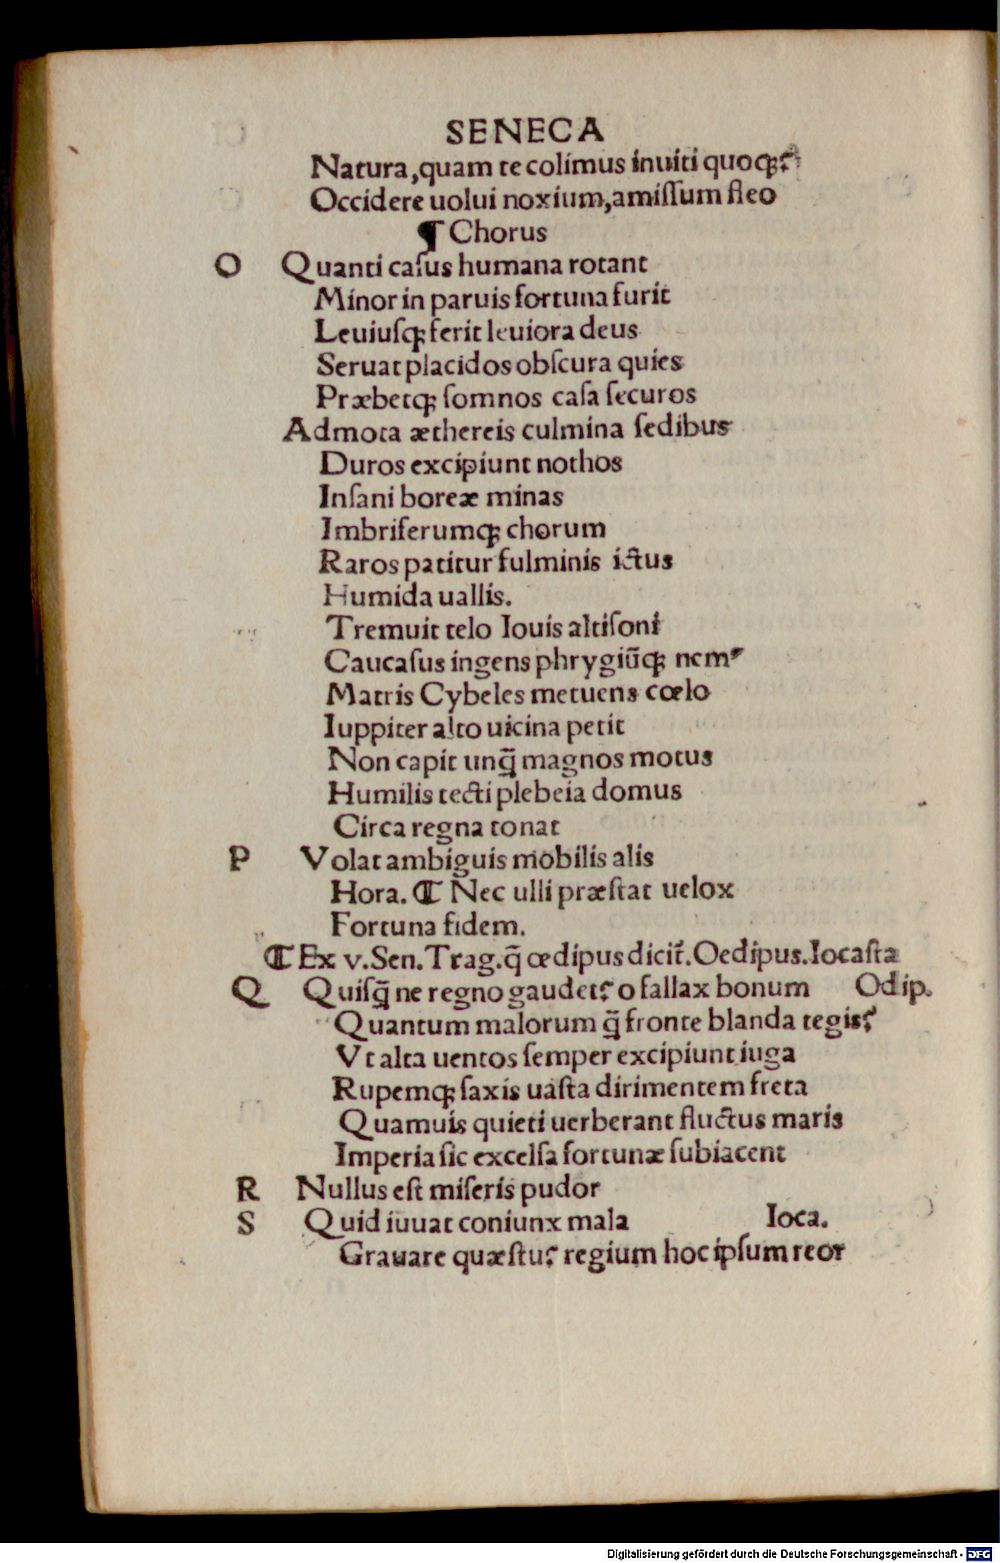 SENECA
Natura,quam te colimus inuiti quoqꝫ?
Occidere uolui noxium,amiſſum fleo
¶ Chorus
O Quanti caſus humana rotant
Minor in paruis fortuna furit
Leuiuſqꝫ ferit leuiora deus
Seruat placidos obſcura quies
Præbetqꝫ ſomnos caſa ſecuros
Admota æthereis culmina ſedibus
Duros excipiunt nothos
Inſani boreæ minas
Imbriferumqꝫ chorum
Raros patitur fulminis ictus
Humida uallis.
Tremuit telo Iouis altiſoni
Caucaſus ingens phrygiūqꝫ nemꝰ
Matris Cybeles metuens cœlo
Iuppiter alto uicina petit
Non capit unq̃ magnos motus
Humilis tecti plebeia domus
Circa regna tonat
P Volat ambiguis mobilis alis
Hora. ¶ Nec ulli præſtat uelox
Fortuna fidem.
¶ Ex v.Sen.Trag.q̄ œdipus dicit̃.Oedipus.Iocaſta
Q Quiſq̃ ne regno gaudet? o fallax bonum Odip.
Quantum malorum q̃ fronte blanda tegis?
Vt alta uentos ſemper excipiunt iuga
Rupemqꝫ ſaxis uaſta dirimentem freta
Quamuis quieti uerberant fluctus maris
Imperia ſic excelſa fortunæ ſubiacent
R Nullus eſt miſeris pudor
S Quid iuuat coniunx mala Ioca.
Grauare quæſtu? regium hoc ipſum reor
Digitalisierung gefördert durch die Deutsche Forschungsgemeinschaft - DFG